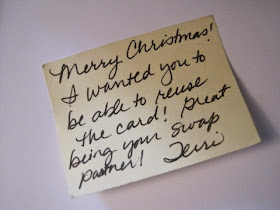 Merry Christmas!
I wanted you to
be able to reuse
the card! Great
being your swap
partner! Terri